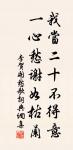 我當二十不得意
一心愁謝如枯蘭
李賀開愁歌詞典網集